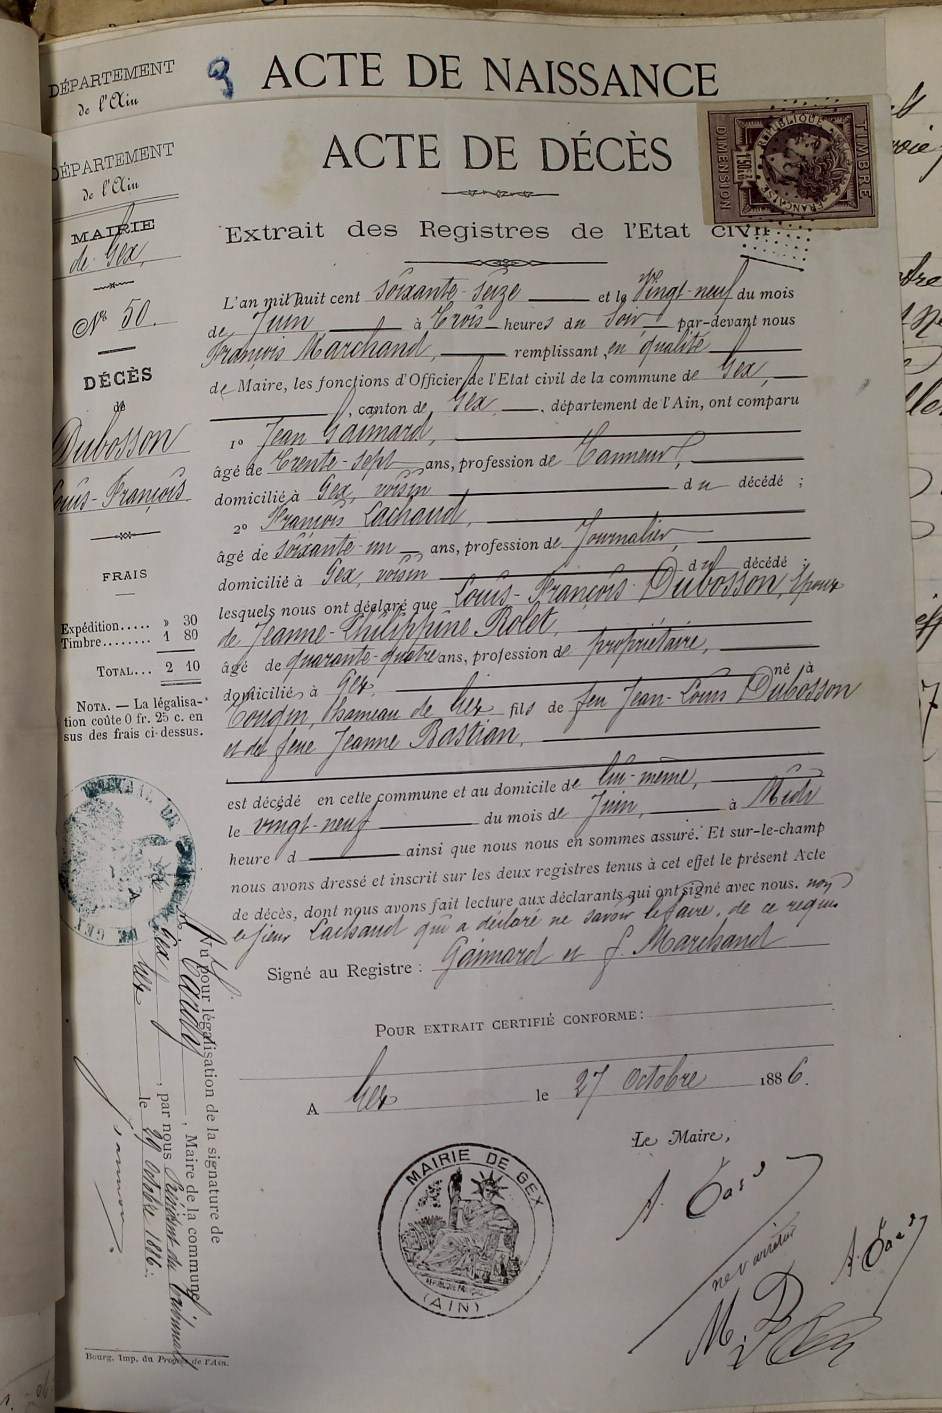 DÉPARTEMENT
de l'Ain
3 ACTE DE NAISSANCE
DÉPARTEMENT
de l'Ain
MAIRIE
de Gex,
N° 50.
DÉCÈS
de
Dubosson
Louis-François
FRAIS
Expédition..... » 30
Timbre........ 1 80
TOTAL... 2 10
NOTA. — La légalisa-
tion coûte 0 fr. 25 c. en
sus des frais ci-dessus.
ACTE DE DÉCÈS
TIMBRE
RÉPUBLIQUE FRANÇAISE
DIMENSION
Extrait des Registres de l'Etat civil
L'an mil huit cent soixante-seize et le Vingt-neuf du mois
de Juin, à Trois heures du Soir par-devant nous
François Marchand, remplissant en qualité
de Maire, les fonctions d'Officier de l'Etat civil de la commune de Gex,
, canton de Gex, département de l'Ain, ont comparu
1° Jean Gaimard,
âgé de Trente-sept ans, profession de Tanneur,
domicilié à Gex, voisin du décédé ;
2° François Lachaud,
âgé de soixante-un ans, profession de Journalier,
domicilié à Gex, voisin du décédé ;
lesquels nous ont déclaré que Louis-François Dubosson, époux
de Jeanne-Philippine Rolet,
âgé de quarante-quatre ans, profession de propriétaire,
domicilié à Gex, né à
Tougin, hameau de Gex fils de feu Jean-Louis Dubosson
et de feue Jeanne Bastian,
est décédé en cette commune et au domicile de lui-même,
le vingt-neuf du mois de Juin, à Midi
heure d ainsi que nous nous en sommes assuré. Et sur-le-champ
nous avons dressé et inscrit sur les deux registres tenus à cet effet le présent Acte
de décès, dont nous avons fait lecture aux déclarants qui ont signé avec nous. non
le sieur Lachaud qui a déclaré ne savoir le faire, de ce requis
Signé au Registre : Gaimard et f. Marchand
POUR EXTRAIT CERTIFIÉ CONFORME :
A Gex le 27 Octobre 1886.
Le Maire,
MAIRIE DE GEX
(AIN)
ne varietur
Vu pour légalisation de la signature de
M. , Maire de la commune
de Gex, par nous Président du Tribunal
A Gex le 29 Octobre 1886.
Bourg, Imp. du Progrès de l'Ain.